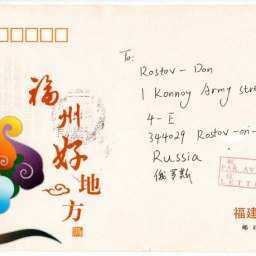 To:
Rostov - Don
1 Konnoy Army str
4 - E
344029 Rostov-on-
Russia
俄罗斯
福州好地方
PAR AV
LETT
福建